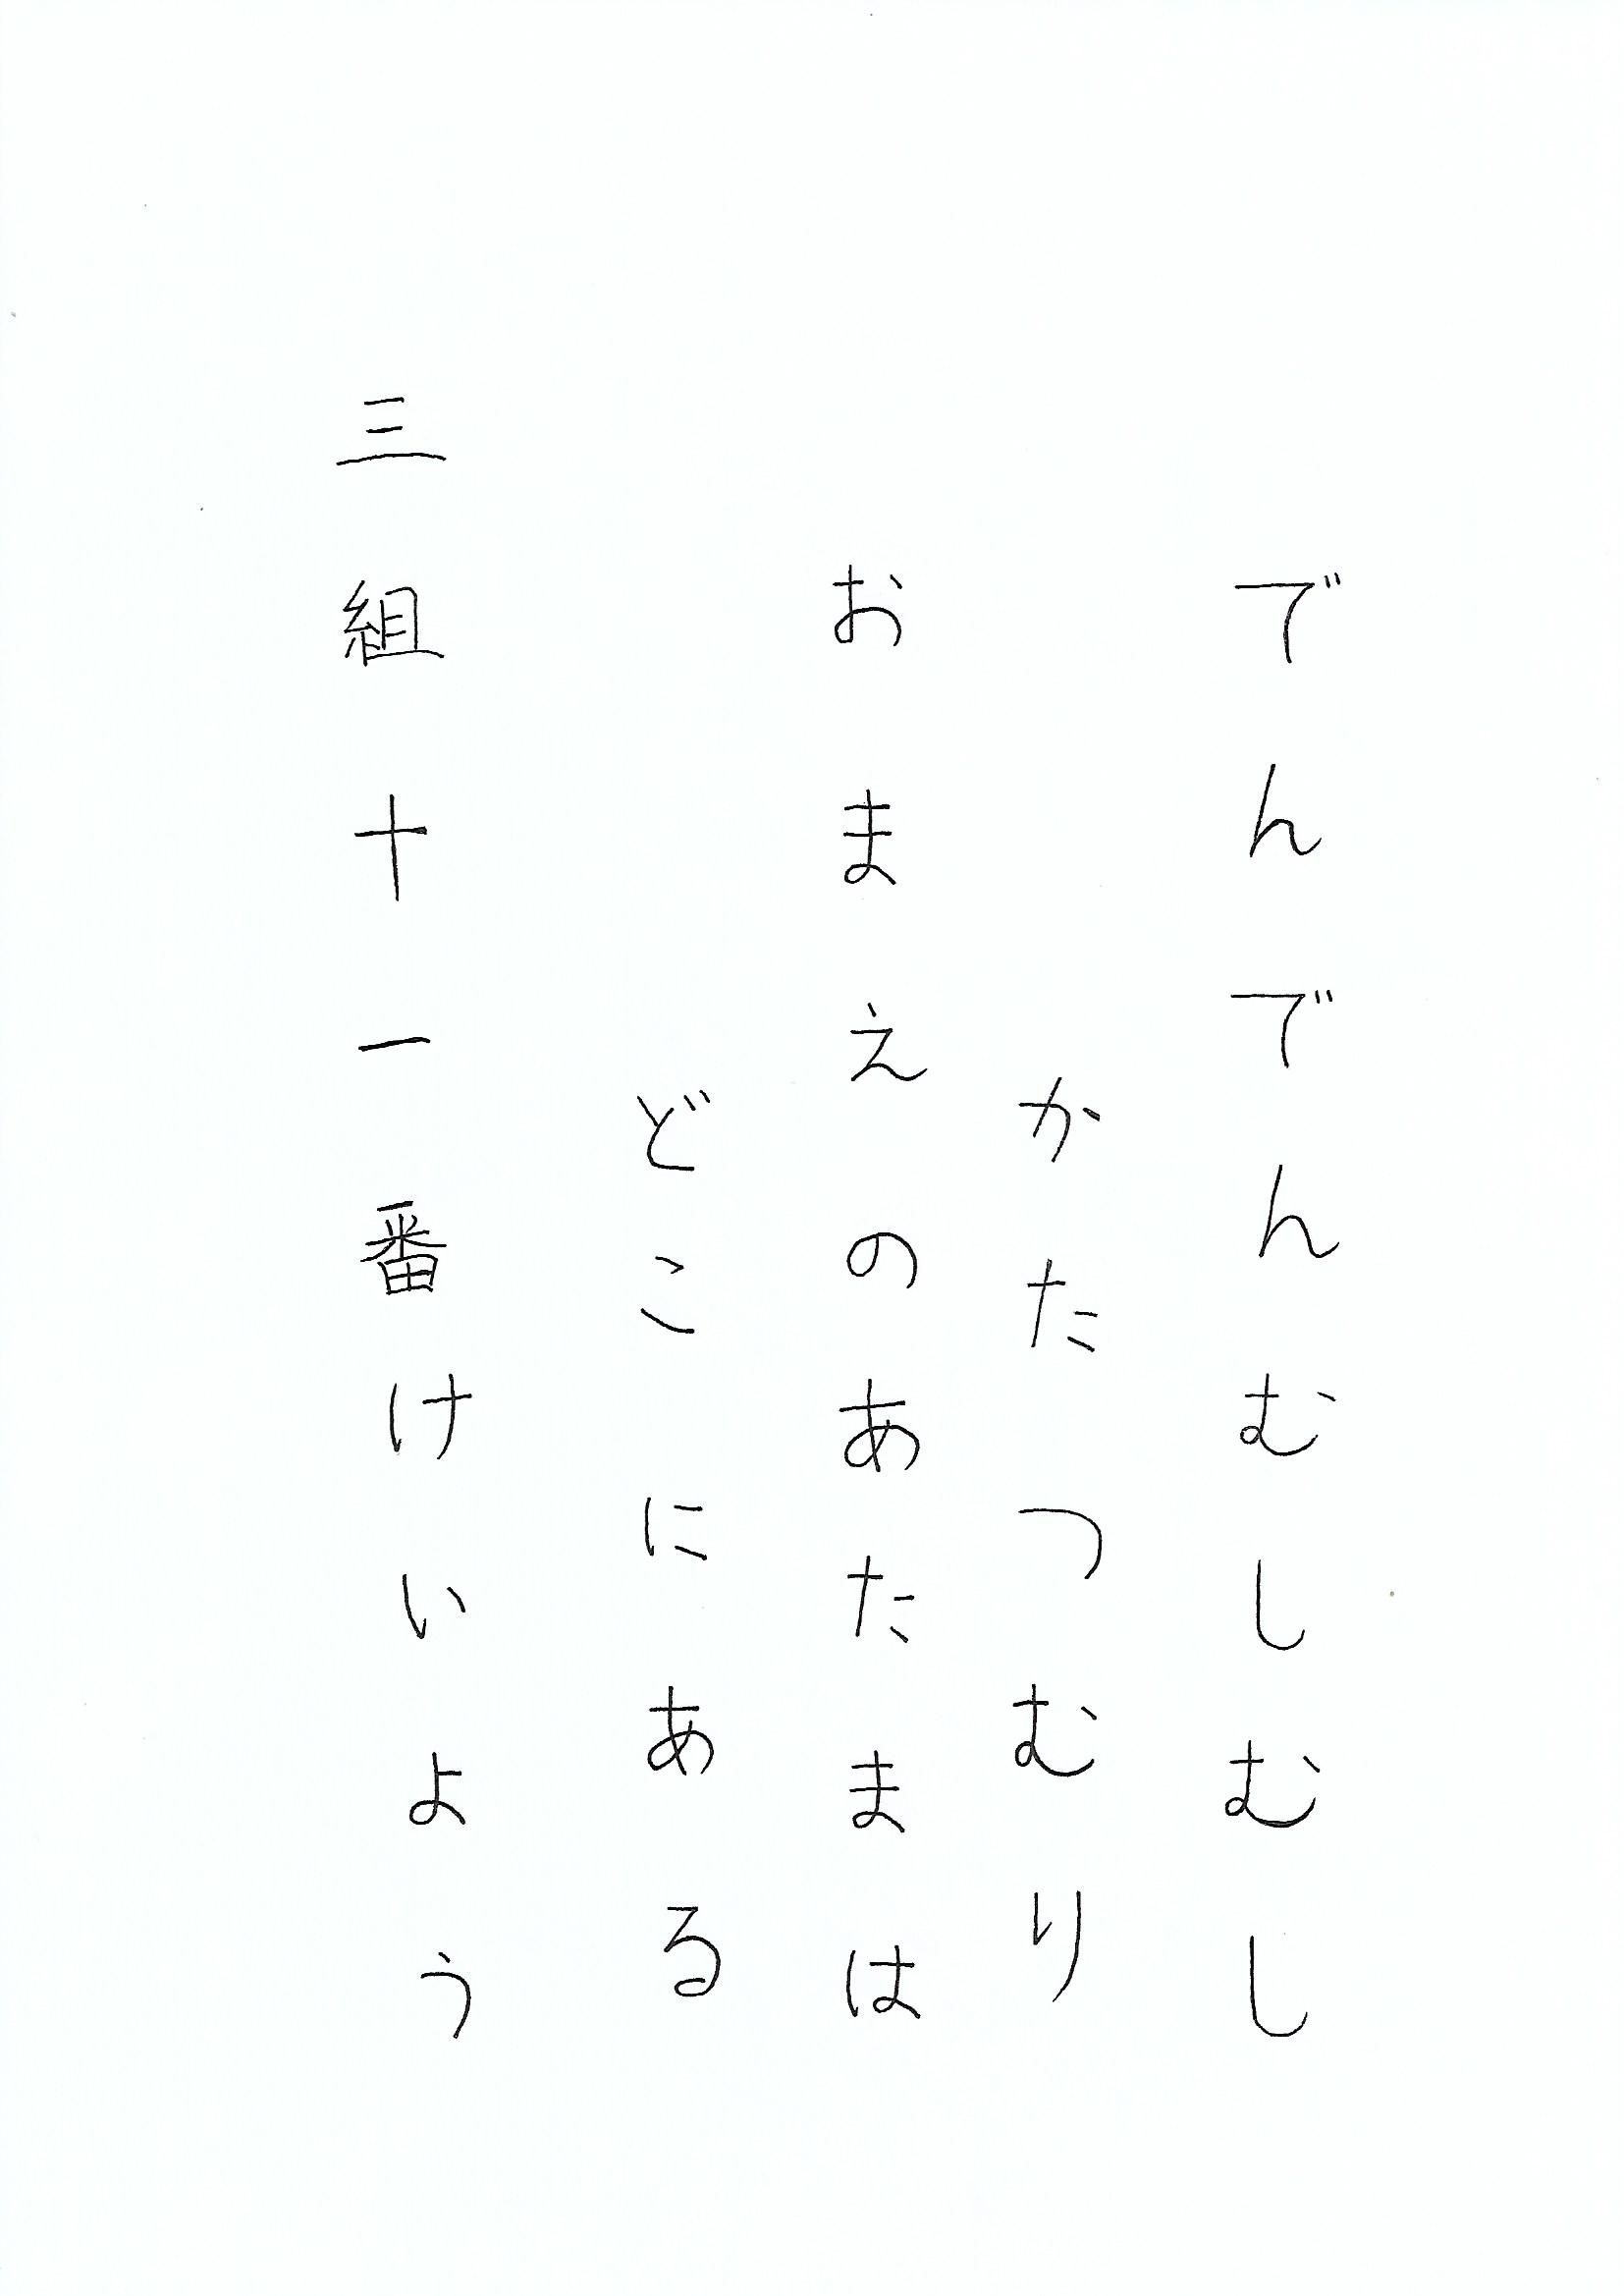 でんでんむしむし
かたつむり
おまえのあたまは
どこにある
三組十一番けいよう